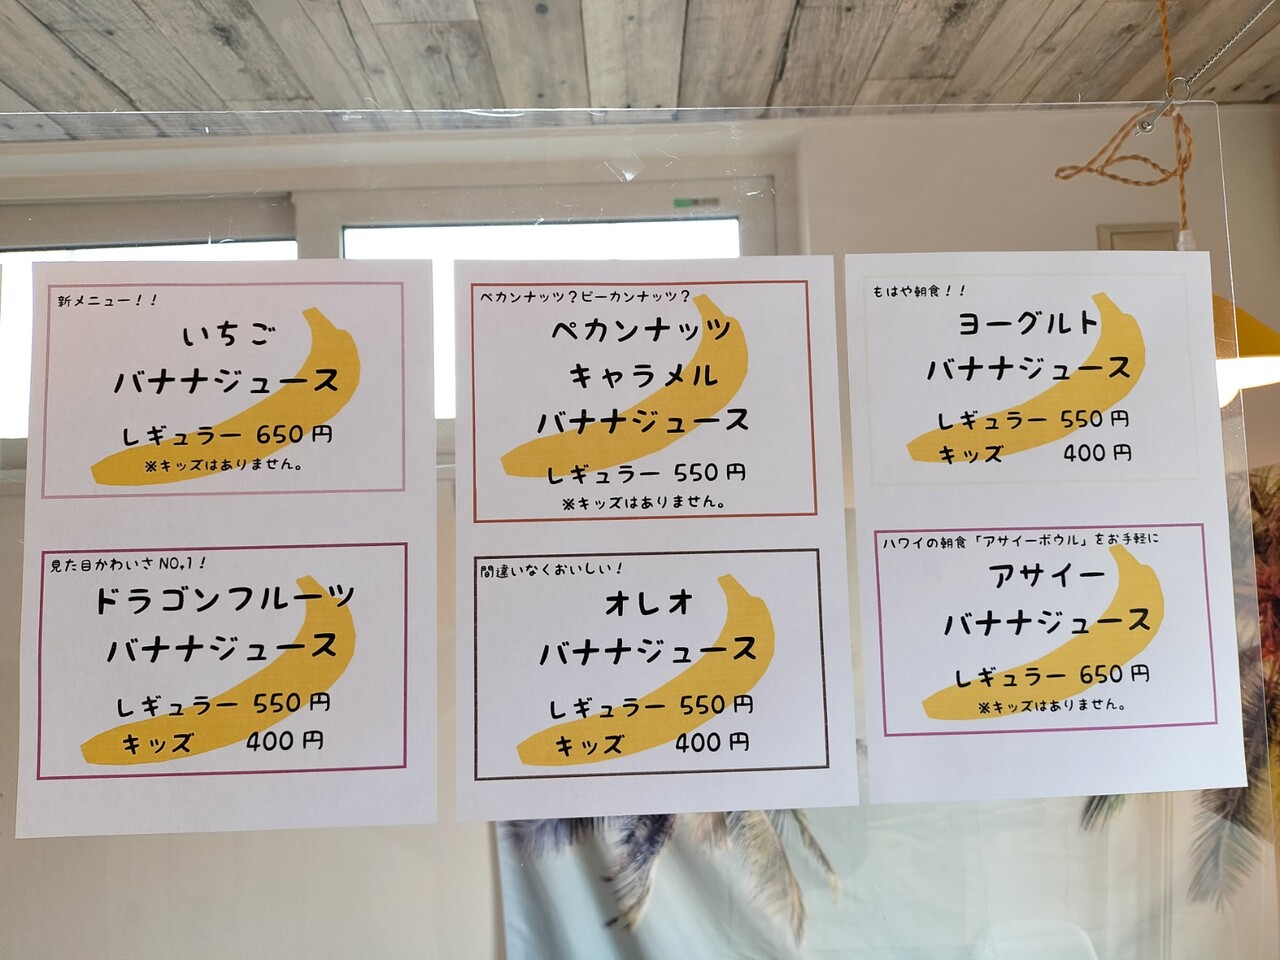 新メニュー！！
いちご
バナナジュース
レギュラー 650円
※キッズはありません。
見た目かわいさNO,1！
ドラゴンフルーツ
バナナジュース
レギュラー 550円
キッズ 400円
ペカンナッツ？ピーカンナッツ？
ペカンナッツ
キャラメル
バナナジュース
レギュラー 550円
※キッズはありません。
間違いなくおいしい！
オレオ
バナナジュース
レギュラー 550円
キッズ 400円
もはや朝食！！
ヨーグルト
バナナジュース
レギュラー 550円
キッズ 400円
ハワイの朝食「アサイーボウル」をお手軽に
アサイー
バナナジュース
レギュラー 650円
※キッズはありません。